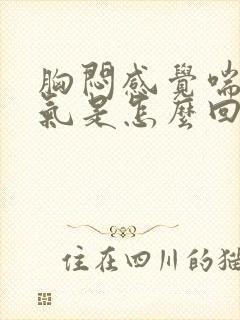 胸悶感覺喘
氣是怎麼回
住在四川的貓